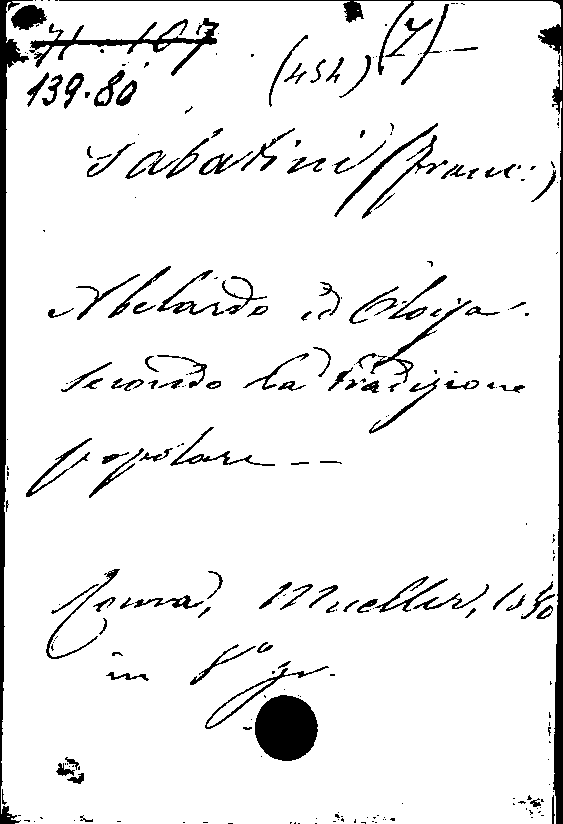 71. 107
139.80 (454) (7)
Sabatini (Franc:)
Abelardo ed Eloisa
secondo la tradizione
popolare --
Roma, Mueller, 1880
in 8° gr.